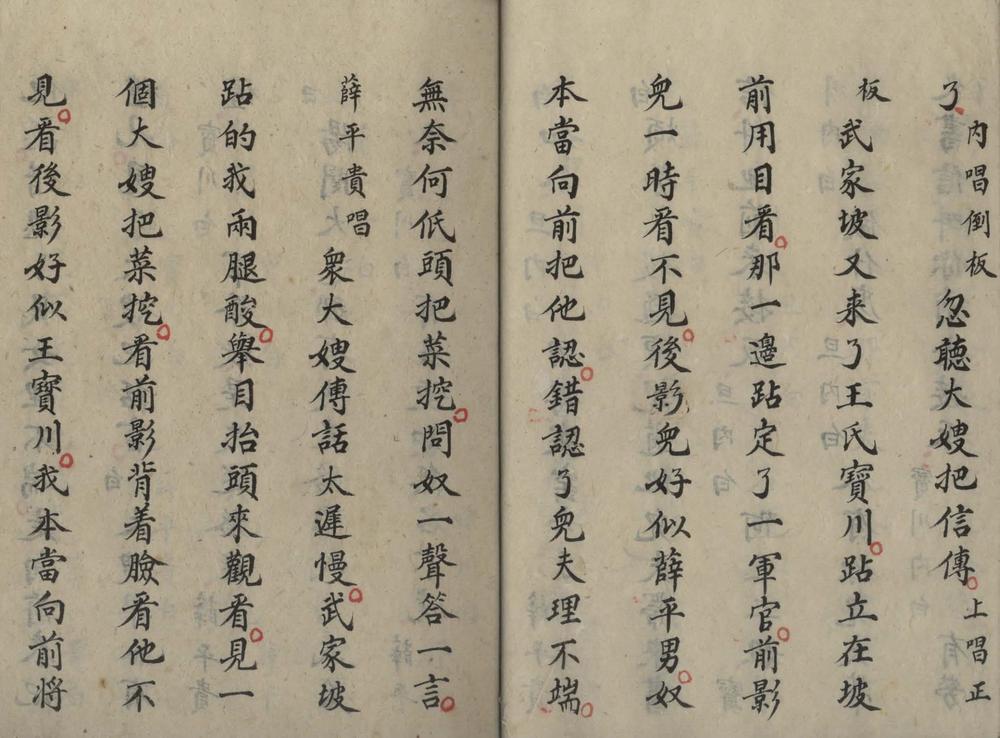 了內唱倒板忽聽大嫂把信傳上唱正
板武家坡又来了王氏寶川跕立在坡
前用目看那一邉跕定了一軍官前影
兒一時看不見後影兒好似薛平男奴
本當向前把他認錯認了兒夫理不端
無奈何低頭把菜挖問奴一聲答一言
薛平貴唱衆大嫂傳話太遲慢武家坡
跕的我兩腿酸舉目抬頭來觀看見一
個大嫂把菜挖看前影背着臉看他不
見看後影好似王寶川我本當向前将